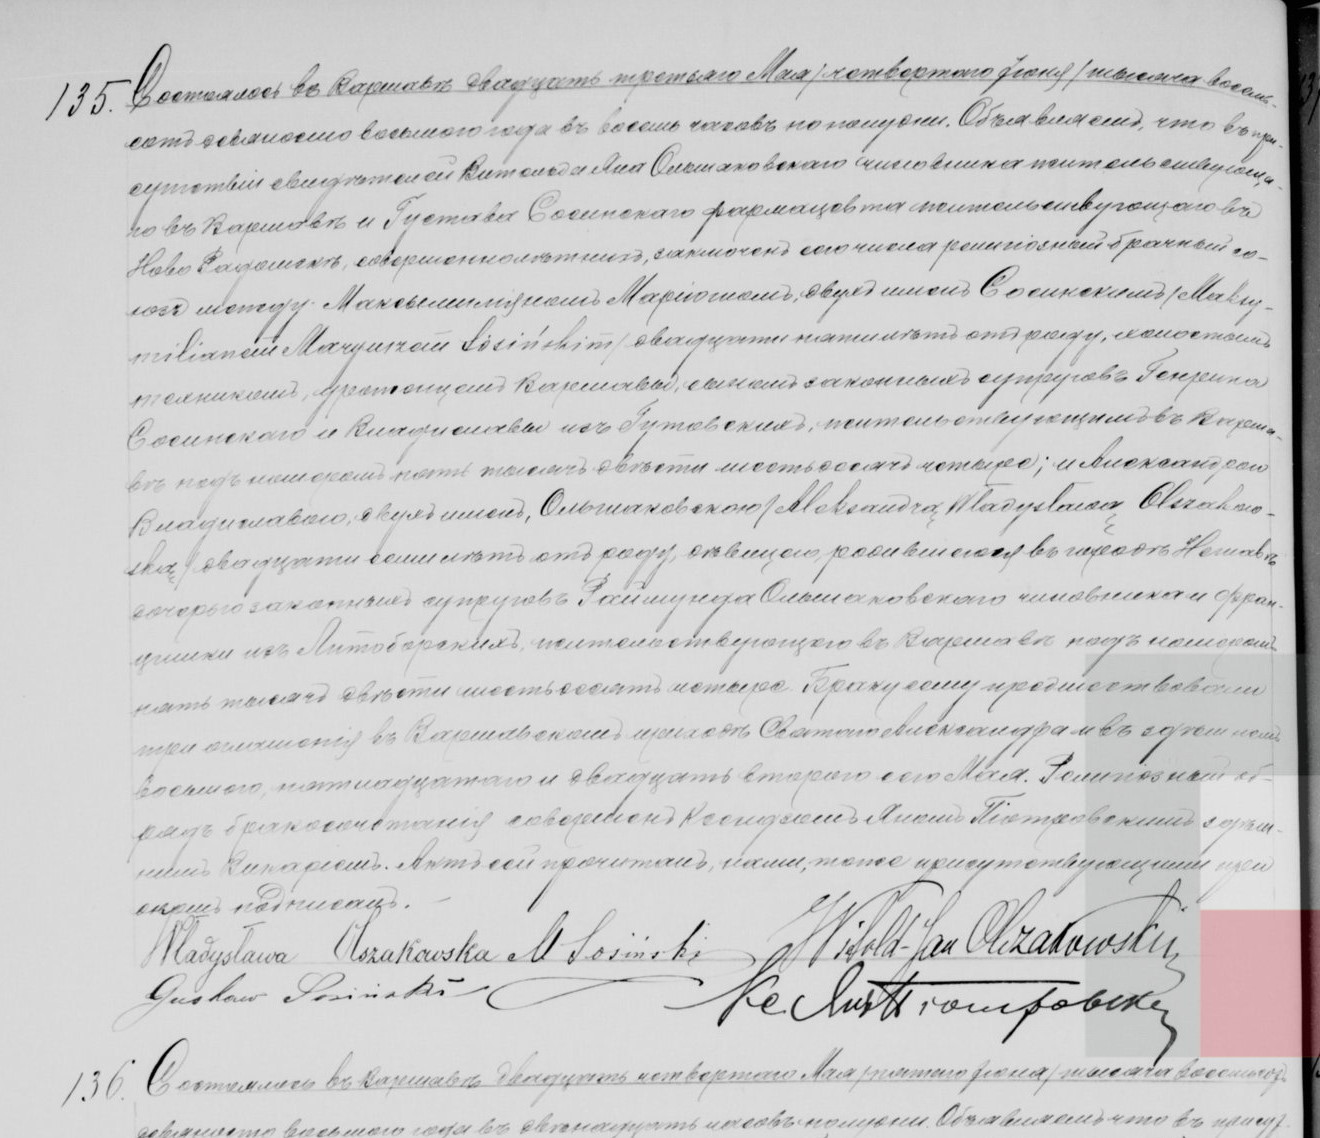 135. Состоялось въ Варшавѣ двадцать третьяго Мая /четвертаго Іюня/ тысяча восемь-
сотъ девяносто восьмого года въ восемь часовъ по полудни. Объявляемъ, что въ при-
сутствіи свидѣтелей Витольда Яна Ольшаковскаго чиновника жительствующа-
го въ Варшавѣ и Густава Сосинскаго фармацевта жительствующаго въ
Ново Радомскѣ, совершеннолѣтнихъ, заключенъ сего числа религіозный брачный со-
юзъ между Максымиліяномъ Маріюшемъ, двухъ именъ Сосинскимъ /Maksy-
milianem Maryuszem Sosińskim/ двадцати пяти лѣтъ отъ роду, холостымъ
техникомъ, уроженцемъ Варшавы, сыномъ законныхъ супруговъ Генрика
Сосинскаго и Владиславы изъ Гутовскихъ, жительствующимъ въ Варша-
вѣ подъ номеромъ пять тысячъ двѣсти шестьдесятъ четыре; и Александрою
Владиславою, двухъ именъ, Ольшаковскою /Aleksandrą Władysławą Olszakow-
ską/ двадцати семи лѣтъ отъ роду, дѣвицею, родившеюся въ городѣ
дочерью законныхъ супруговъ Раймунда Ольшаковскаго чиновника и Фран-
цишки изъ жительствующаго въ Варшавѣ подъ номеромъ
пять тысячъ двѣсти шестьдесятъ четыре. Браку сему предшествовали
три оглашенія въ Варшавскомъ приходѣ Святаго Александра и въ здѣшнемъ
восьмого, пятнадцатаго и двадцать второго сего Мая. Религіозный об-
рядъ бракосочетанія совершенъ Ксендзомъ Яномъ Піотровскимъ здѣш-
нимъ Викаріемъ. Актъ сей прочитанъ, нами, тоже присутствующими при
ономъ подписанъ. -
Władysława Olszakowska M Sosiński Witold-Jan Olszakowski
Gustaw Sosiński Кс. Янъ Піотровскій
136. Состоялось въ Варшавѣ двадцать четвертаго Мая /пятаго Іюня/ тысяча восемьсотъ
девяносто восьмого года въ двѣнадцать часовъ полудни. Объявляемъ что въ присут-